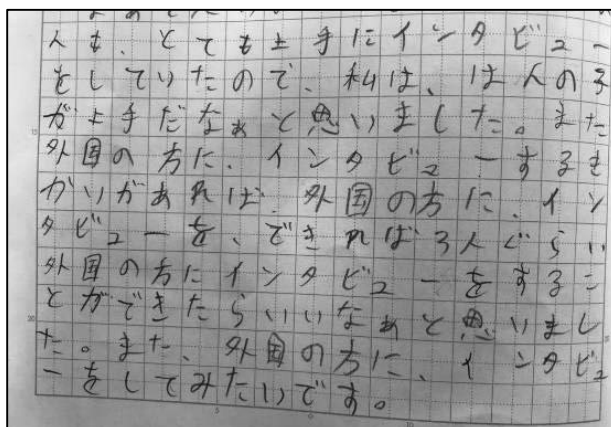 人も、とても上手にインタビュー
をしていたので、私は、は人の子
が上手だなぁと思いました。また
外国の方に、インタビューするき
かいがあれば、外国の方に、イン
タビューを、できれば3人ぐらい
外国の方にインタビューをするこ
とができたらいいなぁと思いまし
た。また、外国の方に、インタビュ
ーをしてみたいです。
15
20
5
10